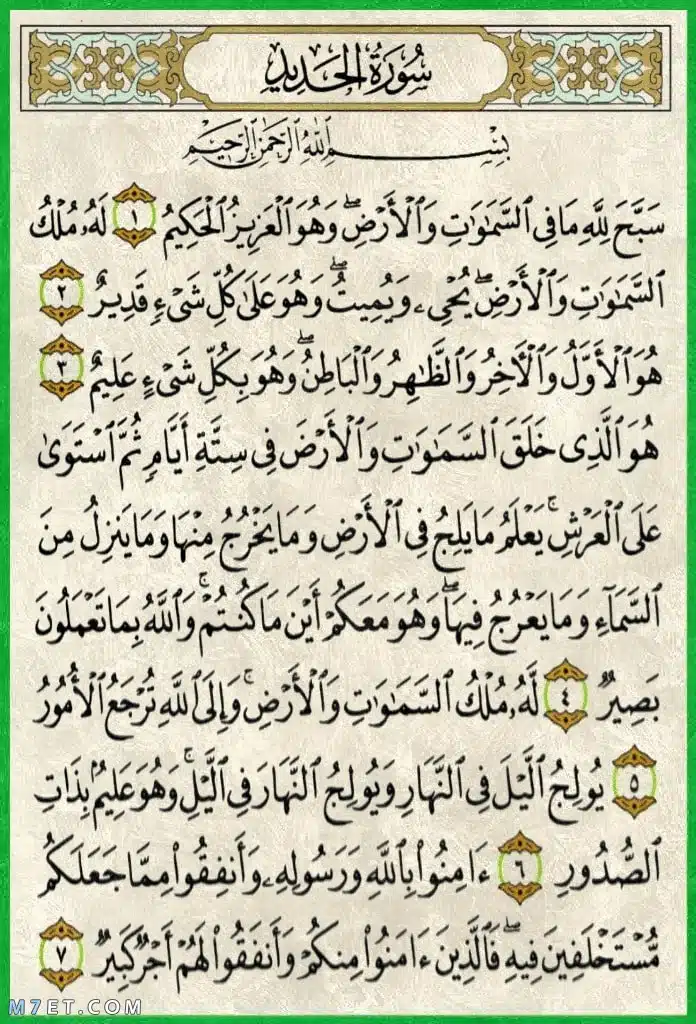 سُورَةُ الْحَدِيدِ
بِسْمِ ٱللَّهِ ٱلرَّحْمَٰنِ ٱلرَّحِيمِ
سَبَّحَ لِلَّهِ مَا فِى ٱلسَّمَٰوَٰتِ وَٱلْأَرْضِ ۖ وَهُوَ ٱلْعَزِيزُ ٱلْحَكِيمُ ١ لَهُۥ مُلْكُ
ٱلسَّمَٰوَٰتِ وَٱلْأَرْضِ ۖ يُحْىِۦ وَيُمِيتُ ۖ وَهُوَ عَلَىٰ كُلِّ شَىْءٍ قَدِيرٌ ٢
هُوَ ٱلْأَوَّلُ وَٱلْءَاخِرُ وَٱلظَّٰهِرُ وَٱلْبَاطِنُ ۖ وَهُوَ بِكُلِّ شَىْءٍ عَلِيمٌ ٣
هُوَ ٱلَّذِى خَلَقَ ٱلسَّمَٰوَٰتِ وَٱلْأَرْضَ فِى سِتَّةِ أَيَّامٍ ثُمَّ ٱسْتَوَىٰ
عَلَى ٱلْعَرْشِ ۚ يَعْلَمُ مَا يَلِجُ فِى ٱلْأَرْضِ وَمَا يَخْرُجُ مِنْهَا وَمَا يَنزِلُ مِنَ
ٱلسَّمَآءِ وَمَا يَعْرُجُ فِيهَا ۖ وَهُوَ مَعَكُمْ أَيْنَ مَا كُنتُمْ ۚ وَٱللَّهُ بِمَا تَعْمَلُونَ
بَصِيرٌ ٤ لَّهُۥ مُلْكُ ٱلسَّمَٰوَٰتِ وَٱلْأَرْضِ ۚ وَإِلَى ٱللَّهِ تُرْجَعُ ٱلْأُمُورُ
٥ يُولِجُ ٱلَّيْلَ فِى ٱلنَّهَارِ وَيُولِجُ ٱلنَّهَارَ فِى ٱلَّيْلِ ۚ وَهُوَ عَلِيمٌۢ بِذَاتِ
ٱلصُّدُورِ ٦ ءَامِنُوا۟ بِٱللَّهِ وَرَسُولِهِۦ وَأَنفِقُوا۟ مِمَّا جَعَلَكُم
مُّسْتَخْلَفِينَ فِيهِ ۖ فَٱلَّذِينَ ءَامَنُوا۟ مِنكُمْ وَأَنفَقُوا۟ لَهُمْ أَجْرٌ كَبِيرٌ ٧
M7ET.COM